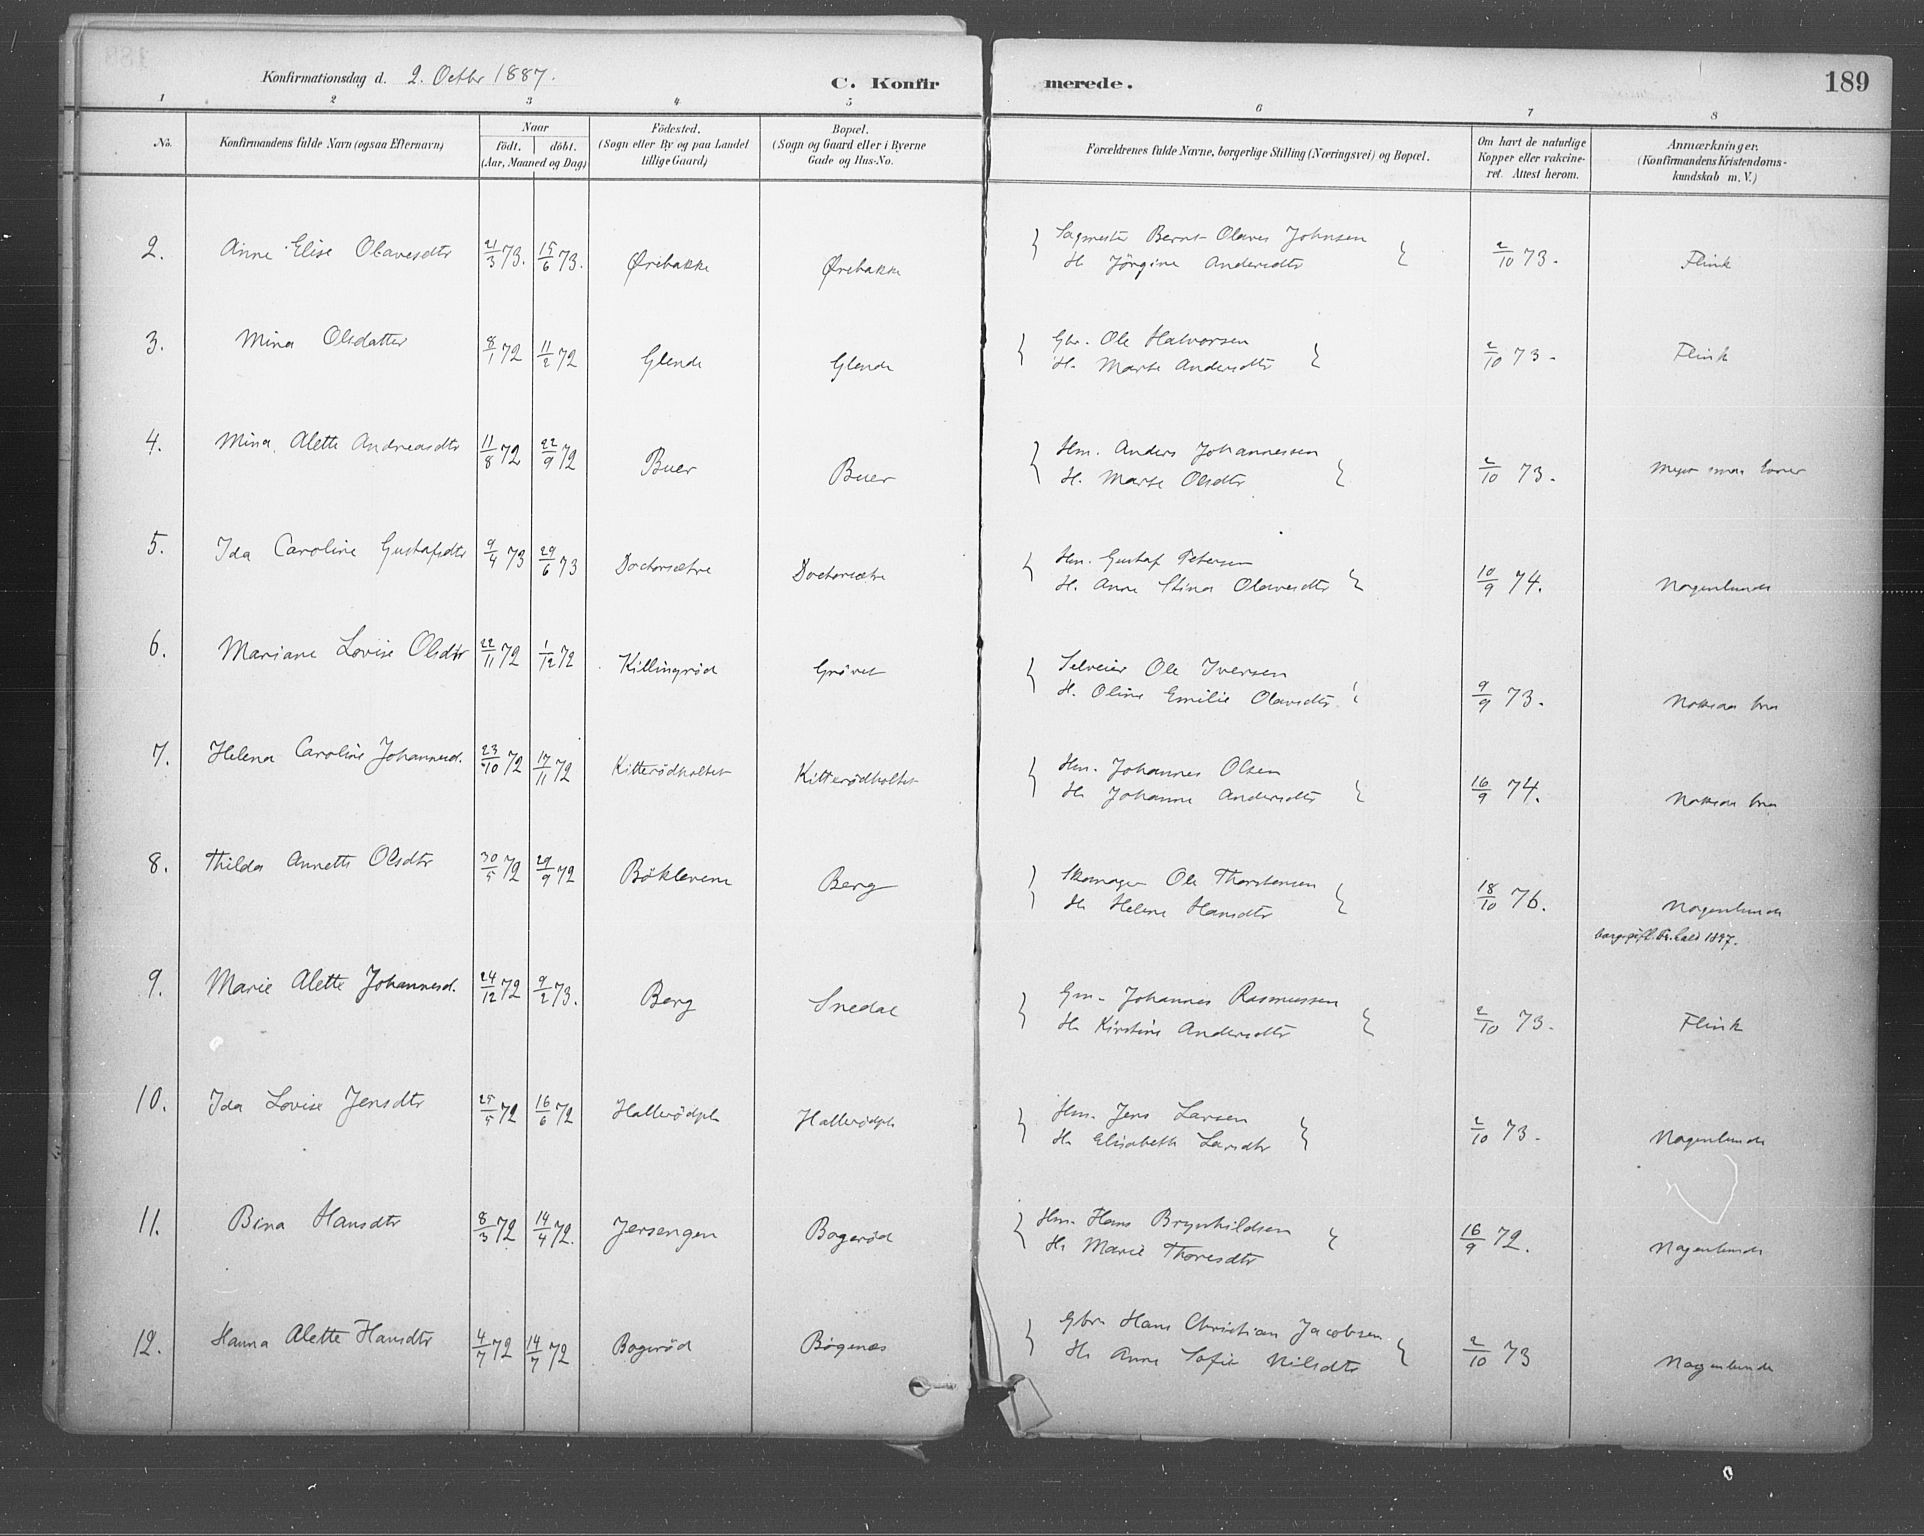 Konfirmationsdag d. 2. Octbr 1887. C. Konfirmerede. 189
1 2 3 4 5 6 7 8
No. Konfirmandens fulde Navn (ogsaa Efternavn) Naar födt. döbt. (Aar, Maaned og Dag) Födested. (Sogn eller By og paa Landet tillige Gaard) Bopæl. (Sogn og Gaard eller i Byerne Gade og Hus-No. Forældrenes fulde Navne, borgerlige Stilling (Næringsvei) og Bopæl. Om havt de naturlige Kopper eller vakcineret. Attest herom. Anmærkninger. (Konfirmandens Kristendomskundskab m. V.)
2. Anne Elise Olavesdtr 21/3 73. 15/6 73. Ørebakke Ørebakke Sagmester Bernt Olaves Johnsen
H. Jörgine Andersdtr 2/10 73. Flink
3. Mina Olsdatter 8/1 72 11/2 72 Glende Glende Gbr. Ole Halvorsen
H. Marte Andersdtr 2/10 73 - Flink
4. Mina Alette Andreasdtr 11/8 72 22/9 72 Buer Buer Hm. Anders Johannessen
H. Marte Olsdtr 2/10 73. Meget smaa Evner
5. Ida Caroline Gustafsdtr 9/4 73 29/6 73 Doctorsætre Doctorsætre Hm. Gustaf Petersen
H. Anne Stina Olavesdtr 10/9 74. Nogenlunde
6. Mariane Lovise Olsdtr 22/11 72 1/12 72 Killingröd Grövet Selveier Ole Iversen
H. Oline Emilie Olavesdtr. 9/9 73. Noksaa bra
7. Helena Caroline Johannesd. 23/10 72 17/11 72 Kitterödholtet Kitterödholtet Hm. Johannes Olsen
H. Johanne Andersdtr 16/9 74. Noksaa bra
8. Thilda Annette Olsdtr 30/5 72 29/9 72 Böklevene Berg Skomager Ole Thorstensen
H. Helene Hansdtr 18/10 76. Nogenlunde
1897.
9. Marie Alette Johannesd. 24/12 72 9/2 73. Berg Snedal Gm. Johannes Rasmussen
H. Kirstine Andersdtr 2/10 73. Flink
10. Ida Lovise Jensdtr 25/5 72 16/6 72 Hallerödpl. Hallerödpl. Hm. Jens Larsen
H. Elisabeth Larsdtr 2/10 73. Nogenlunde
11. Bina Hansdtr 8/3 72 14/4 72. Jersengen Bogeröd Hm. Hans Brynhildsen
H. Marie Thoresdtr 16/9 72. Nogenlunde
12. Hanna Alette Hansdtr 4/7 72 14/7 72 Bogeröd Bögenæs Gbr. Hans Christian Jacobsen
H. Anne Sofie Nilsdtr 2/10 73 Nogenlunde